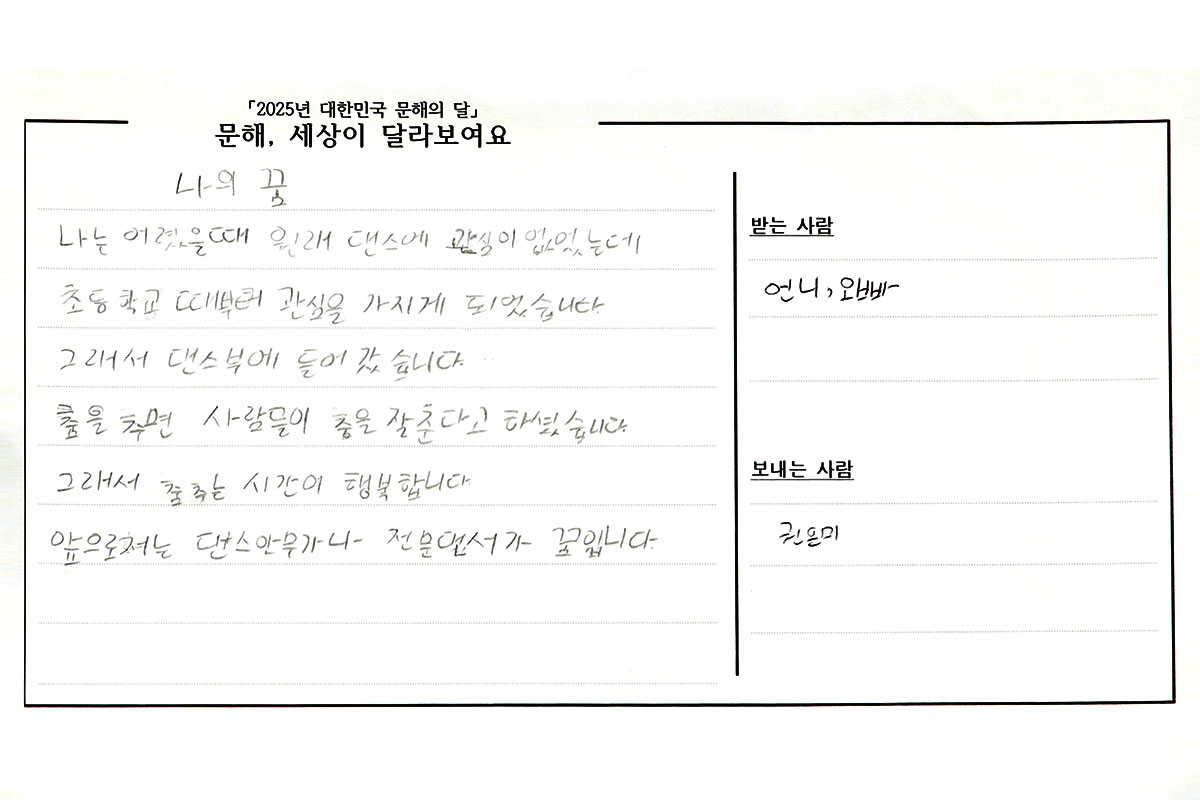 「2025년 대한민국 문해의 달」
문해, 세상이 달라보여요
나의 꿈
나는 어렸을때 원래 댄스에 관심이 없었는데
초등학교 때부터 관심을 가지게 되었습니다.
그래서 댄스부에 들어 갔습니다.
춤을 추면 사람들이 춤을 잘춘다고 하셨습니다.
그래서 춤추는 시간이 행복합니다.
앞으로저는 댄스안무가나 전문댄서가 꿈입니다.
받는 사람
언니, 오빠
보내는 사람
권은미